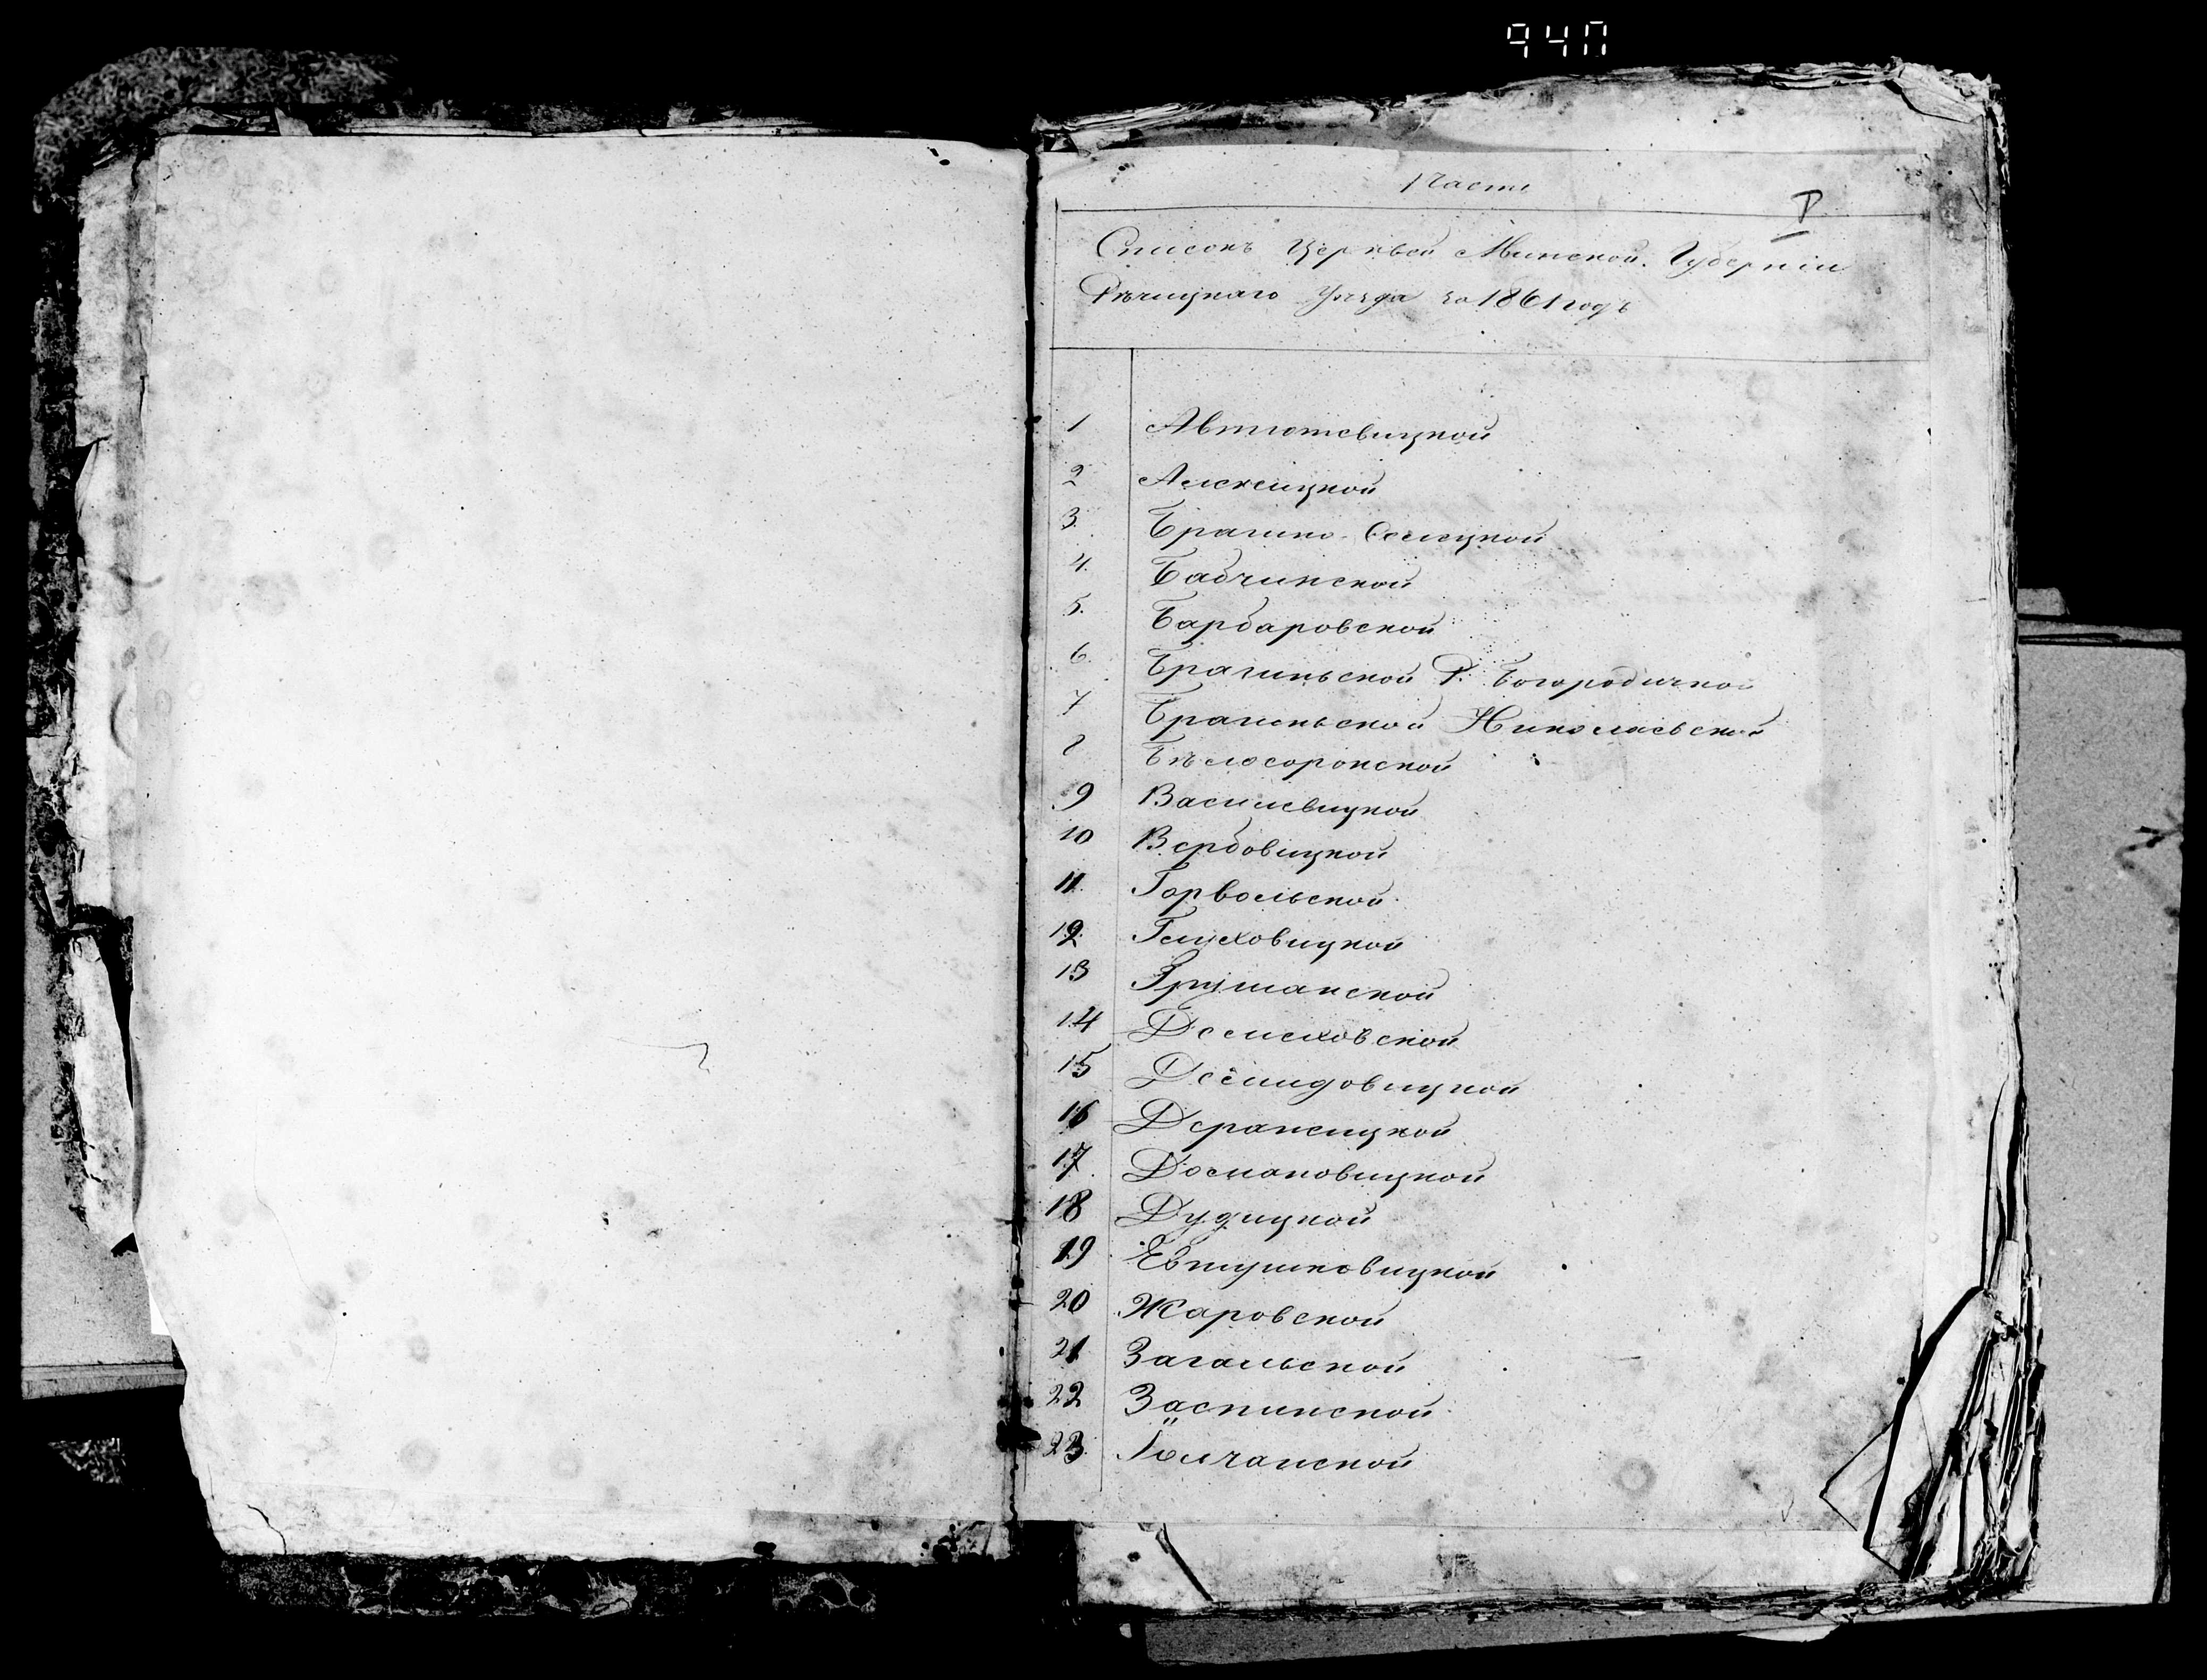 940
1 Часть
I
Списокъ Церквей Минской Губерніи
Рѣчицкаго Уѣзда за 1861 годъ
1 Автютевицкой
2 Алексицкой
3. Брагино-Селецкой
4. Бабчинской
5. Барбаровской
6. Брагиньской Р. Богородичной
7 Брагиньской Николаевской
8 Бѣлосоройской
9 Василевицкой
10 Вербовицкой
11. Горвольской
12. Глуховицкой
13 Грушанской
14 Демеховской
15 Демидовицкой
16 Деражицкой
17. Домановицкой
18 Дудицкой
19 Евтушковицкой
20 Жаровской
21 Загальской
22 Заспинской
23. Юлчанской